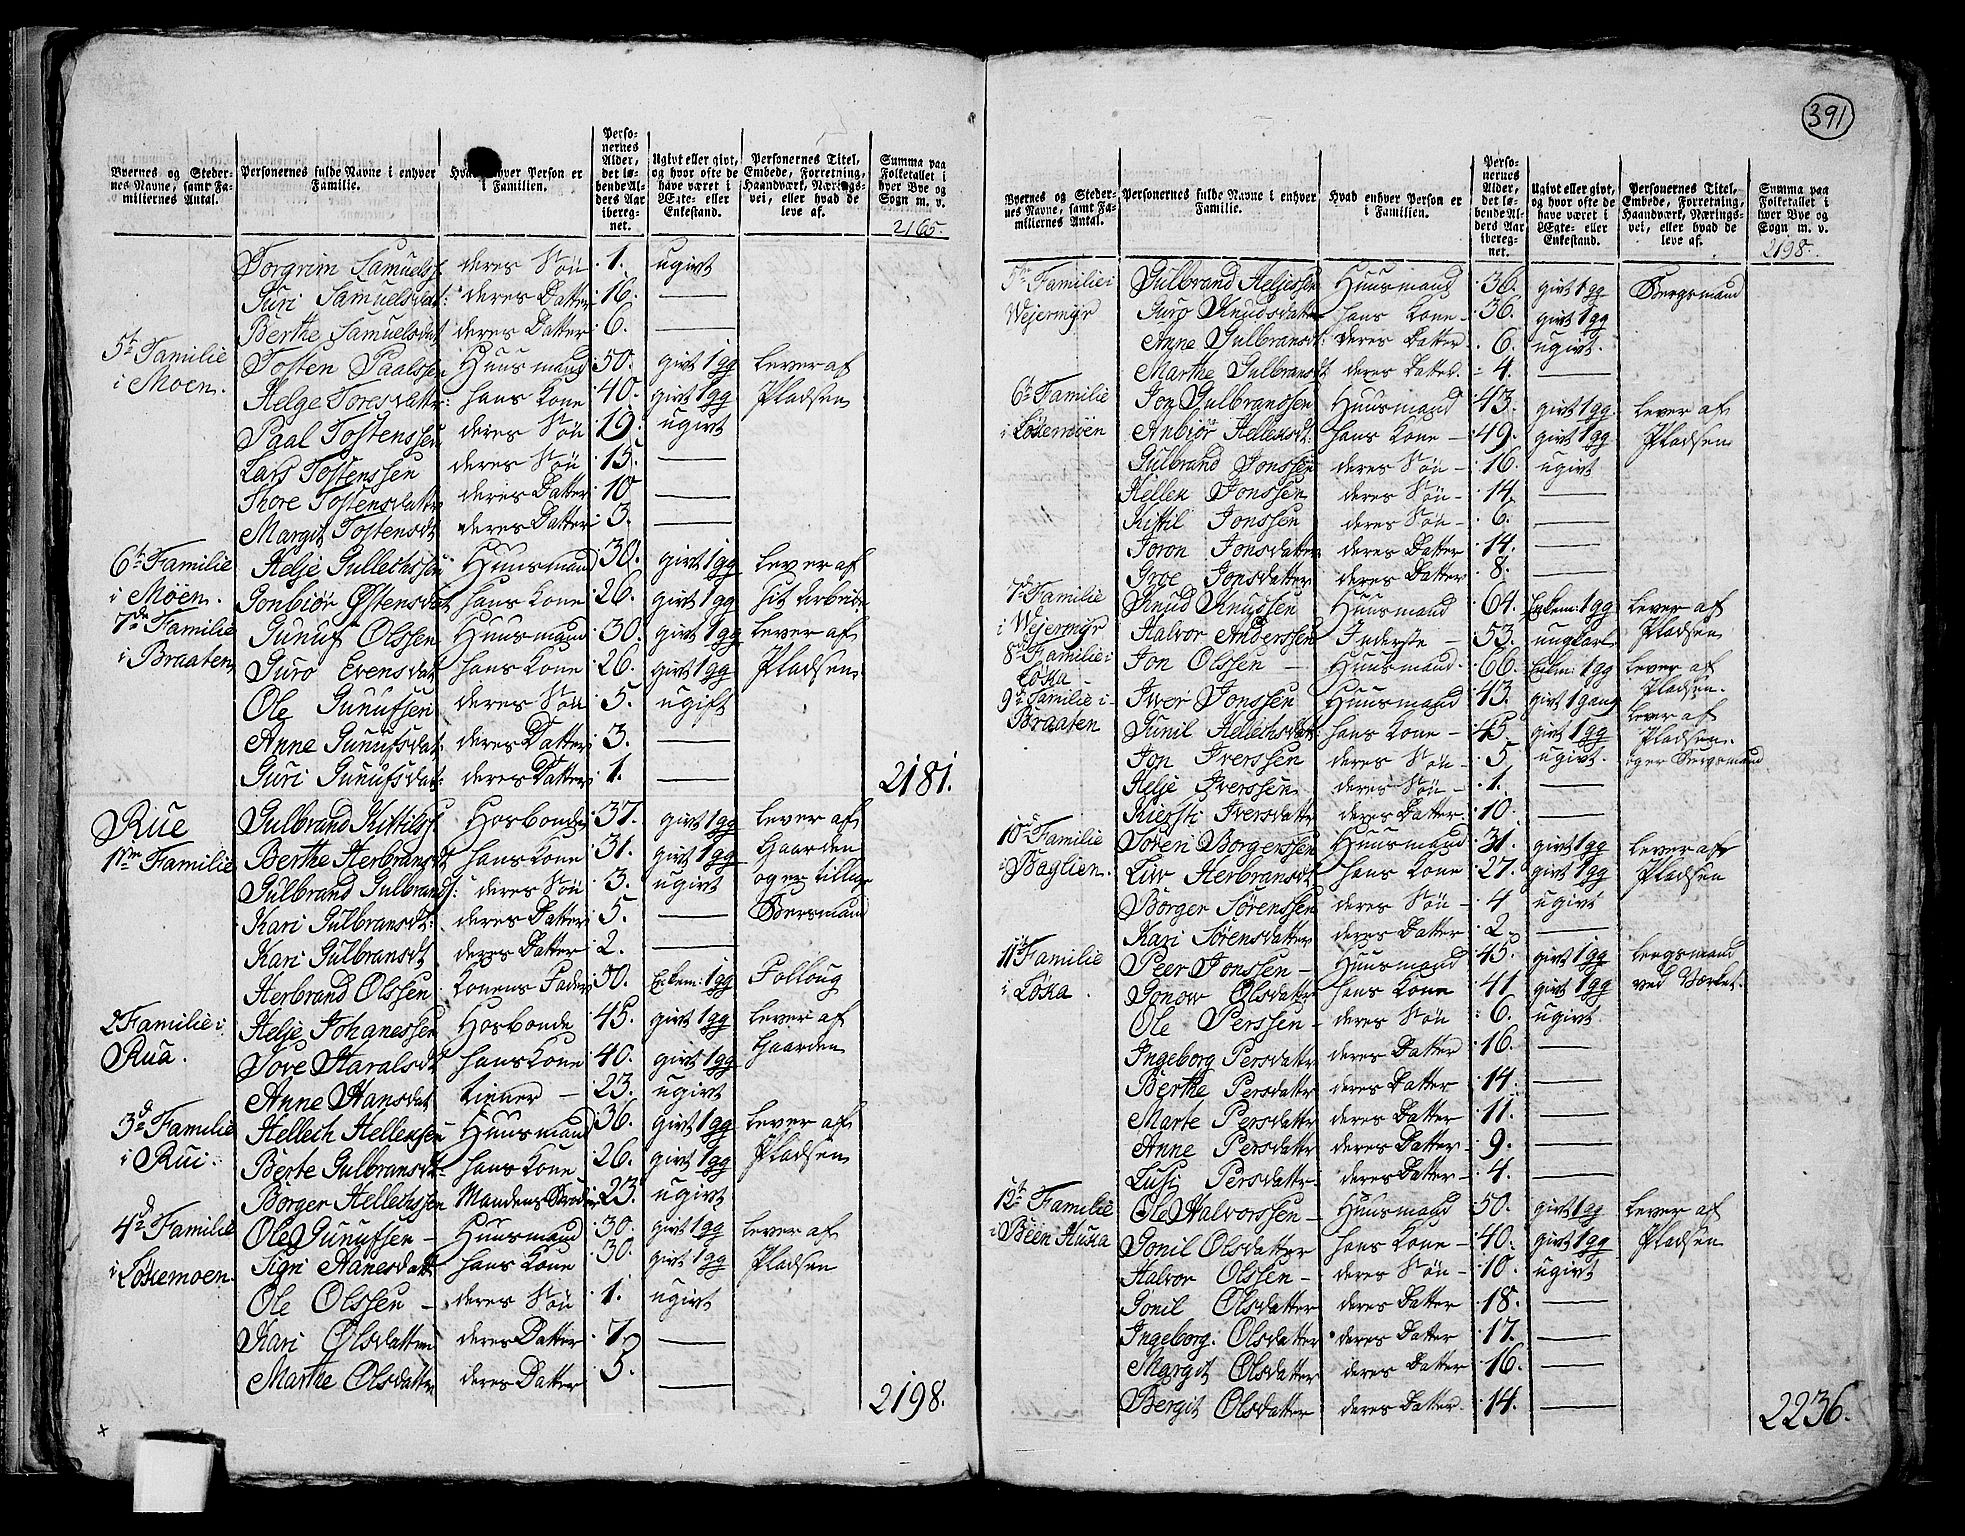 391
Byernes og Stedernes Navne, samt Familiernes Antal. Personernes fulde Navne i enhver Familie. Hvad enhver Person er i Familien. Personernes Alder, det løbende Alders Aar iberegnet. Ugivt eller givt, og hvor ofte de have været i Ægte- eller Enkestand. Personernes Titel, Embede, Forretning, Haandværk, Næringsvei, eller hvad de leve af. Summa paa Folketallet i hver Bye og Sogn m. v.
2165.
Torgrim Samuelss. deres Søn 1. ugivt
Guri Samuelsdat: deres Datter 16. —
Berthe Samuelsdat deres Datter 6. —
5te Familie Tosten Paalssen Huusmand 50. givt 1 gg lever af
i Moen. Helge Toresdattr: hans Kone 40. givt 1 gg Pladsen
Paal Tostenssen deres Søn 19. ugivt
Lars Tostenssen deres Søn 15. —
Thore Tostensdattr deres Datter 10 —
Margit Tostensdt deres Datter 3. —
6te Familie Helje Gullechssen Huusmand 30. givt 1 gg lever af
i Möen. Gonbiör Østensdat hans Kone 26. givt 1 gg sit Arbeide
7de Familie Gunuf Olssen Huusmand 30. givt 1 gg lever af
i Braaten Guro Evensdat hans Kone 26. givt 1 gg Pladsen
Ole Gunufsen deres Søn 5. ugift
Anne Gunufsdat: deres Datter 3. —
Guri Gunufsdat: deres Datter 1. — 2181.
Rue Gulbrand Kittilss. Hosbonde 37. givt 1 gg lever af
1me Familie Berthe Herbransdt hans Kone 31. givt 1 gg Gaarden
Gulbrand Gulbrands: deres Søn 3. ugivt og er tillige
Kari Gulbransdt: deres Datter 5. — Bergmand
Kari Gulbransdt. deres Datter 2. —
Herbrand Olssen Konens Fader 50. Enkem: 1 gg Folloug
2 Familie i Helje Johanessen Hosbonde 45. givt 1 gg lever af
Rua. Tove Haralsdt hans Kone 40. givt 1 gg Gaarden
Anne Hansdat tiener – 23. ugivt
3d Familie Hellech Hellexsen Huusmand 36. givt 1 gg lever af
i Rui. Berte Gulbransdt hans Kone 26. givt 1 gg Pladsen
Borger Hellechssen Mandens Broder 23. ugivt
4d Familie Ole Gunufsen – Huusmand 30. givt 1 gg lever af
i Löxemoen. Sigri Hanesdatt hans Kone 30. givt 1 gg Pladsen
Ole Olssen – deres Søn 1. ugivt
Kari Olsdatter deres Datter 7. —
Marthe Olsdattr deres Datter 5. — 2198.
Byernes og Stedernes Navne, samt Familiernes Antal. Personernes fulde Navne i enhver Familie. Hvad enhver Person er i Familien. Personernes Alder, det løbende Alders Aar iberegnet. Ugivt eller givt, og hvor ofte de have været i Ægte- eller Enkestand. Personernes Titel, Embede, Forretning, Haandværk, Næringsvei, eller hvad de leve af. Summa paa Folketallet i hver Bye og Sogn m. v.
2198.
5te Familie i Gulbrand Heljessen Huusmand 36. givt 1 gg Bergmand
Wejermÿr Guro Knudsdatter hans Kone – 36. givt 1 gg
Anne Gulbransdt: deres Datter 6. ugivt.
Marthe Gulbransdt deres Datter. 4. —
6te Familie Jon Gulbranssen Huusmand 43. givt 1 gg. lever af
i Löxemöen Anbiör Hellexsdt. hans Kone – 49. givt 1 gg Pladsen
Gulbrand Jonssen deres Søn – 16. ugivt
Hellek Jonssen deres Søn – 14. —
Kittil Jonssen deres Søn – 6. —
Joron Jonsdatter deres Datter 14. —
Groe Jonsdatter deres Datter 8. —
7de Familie Knud Knudssen Huusmand 64. Enkem: 1 gg lever af
i Wejermÿr Halvor Anderssen Inderste – 53. ungkarl Pladsen
8de Familie i Jon Olssen – Huusmand. 66. Enkem: 1 gg lever af
Löxa – Pladsen.
9de Familie i Iver Jonssen Huusmand 43. givt 1 gang lever af
Braaten Gunil Hellechsdat: hans Kone – 45. givt 1 gg Pladsen.
Jon Iverssen deres Søn – 5 ugivt. og er Bergmand
Helje Iverssen deres Søn – 1. —
Kiersti Iversdatter deres Datter. 10. —
10de Familie Sören Borgerssen Huusmand 31. givt 1 gg lever af
i Baglien. Liw Herbransdt hans Kone 27. givt 1 gg Pladsen
Börger Sørenssen deres Søn – 4 ugivt
Kari Sörensdatter deres Datter 2. —
11te Familie Peer Jonssen – Huusmand 45. givt 1 gg bergmand
i Löxa. Gonow Olsdatter hans Kone 41 givt 1 gg ved Værket.
Ole Perssen – deres Søn 6. ugivt
Ingeborg Persdattr deres Datter 16. —
Berthe Persdattr deres Datter 14. —
Marte Persdattr deres Datter 11. —
Anne Persdattr deres Datter. 9. —
Lusi Persdattr. deres Datter. 4. —
12te Familie Ole Halvorssen – Huusmand 50. givt 1 gg lever af
i Been Huxa Gonil Olsdatter hans Kone – 40. givt 1 gg Pladsen
Halvor Olssen – deres Søn – 10. ugivt
Gonil Olsdatter deres Datter 18. —
Ingeborg. Olsdatter deres Datter 17. —
Margit Olsdatter deres Datter 16. —
Bergit Olsdatter deres Datter. 14. — 2236.